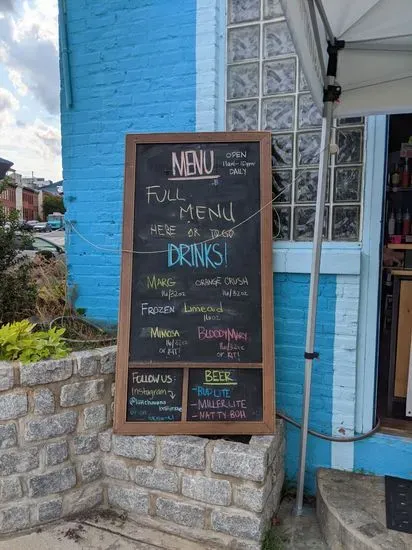 MENU
OPEN
11am-10pm
DAILY
FULL
MENU
HERE OR TO GO
DRINKS!
MARG
16/32oz
ORANGE CRUSH
16/32oz
FROZEN Limeard
16oz
MIMOSA
16/32oz
OR KIT!
BLOODY MARY
16/32oz
OR KIT!
FOLLOW US
Instagram
BEER
-BUD LITE
-MILLER LITE
-NATTY BOH